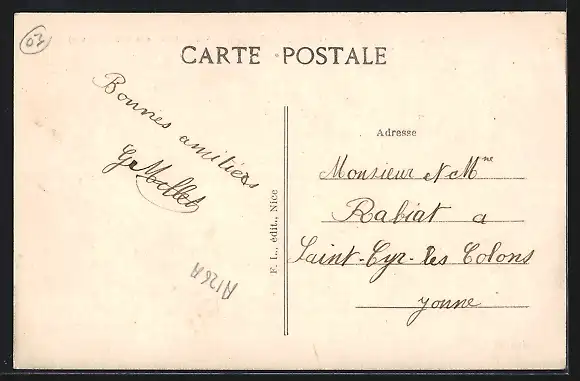 03
CARTE POSTALE
Bonnes amitiers
G Mallet
Adresse
Monsieur et Mme
Rabiat a
Saint-Cyr-les Colons
Yonne
F. L., édit., Nice
A126A